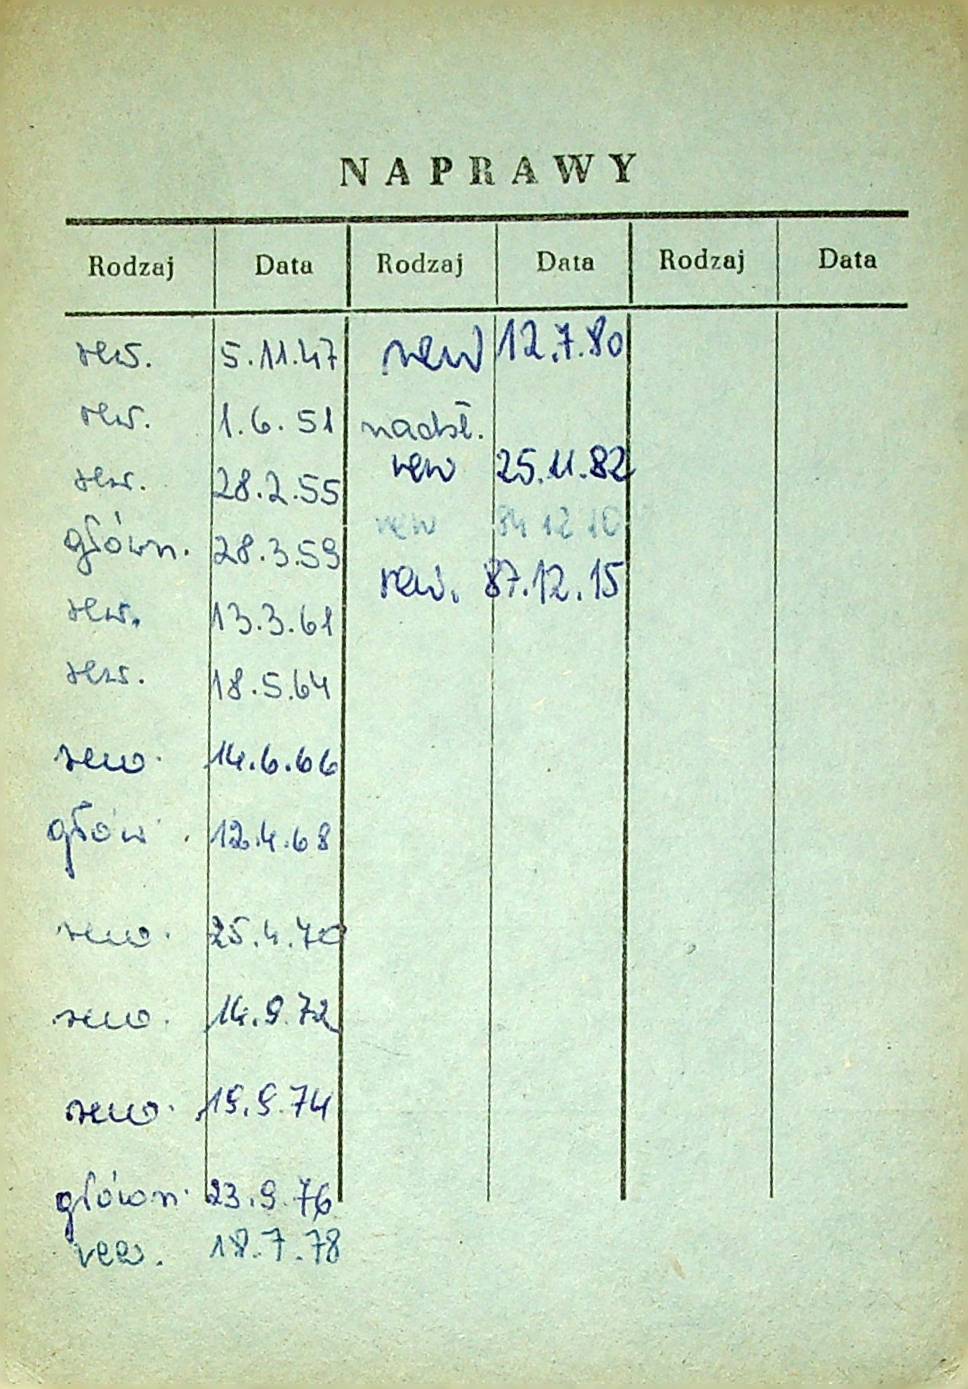 NAPRAWY
Rodzaj Data Rodzaj Data Rodzaj Data
rew. 5.11.47
rew. 1.6.51
rew. 28.2.55
główn. 28.3.59
rew. 13.3.61
rew. 18.5.64
rew. 14.6.66
głów. 12.4.68
rew. 25.4.70
rew. 14.9.72
rew. 19.9.74
główn. 23.9.76
rew. 18.7.78
rew 12.7.80
nadst.
rew 25.11.82
rew 84 12 10
rew. 87.12.15